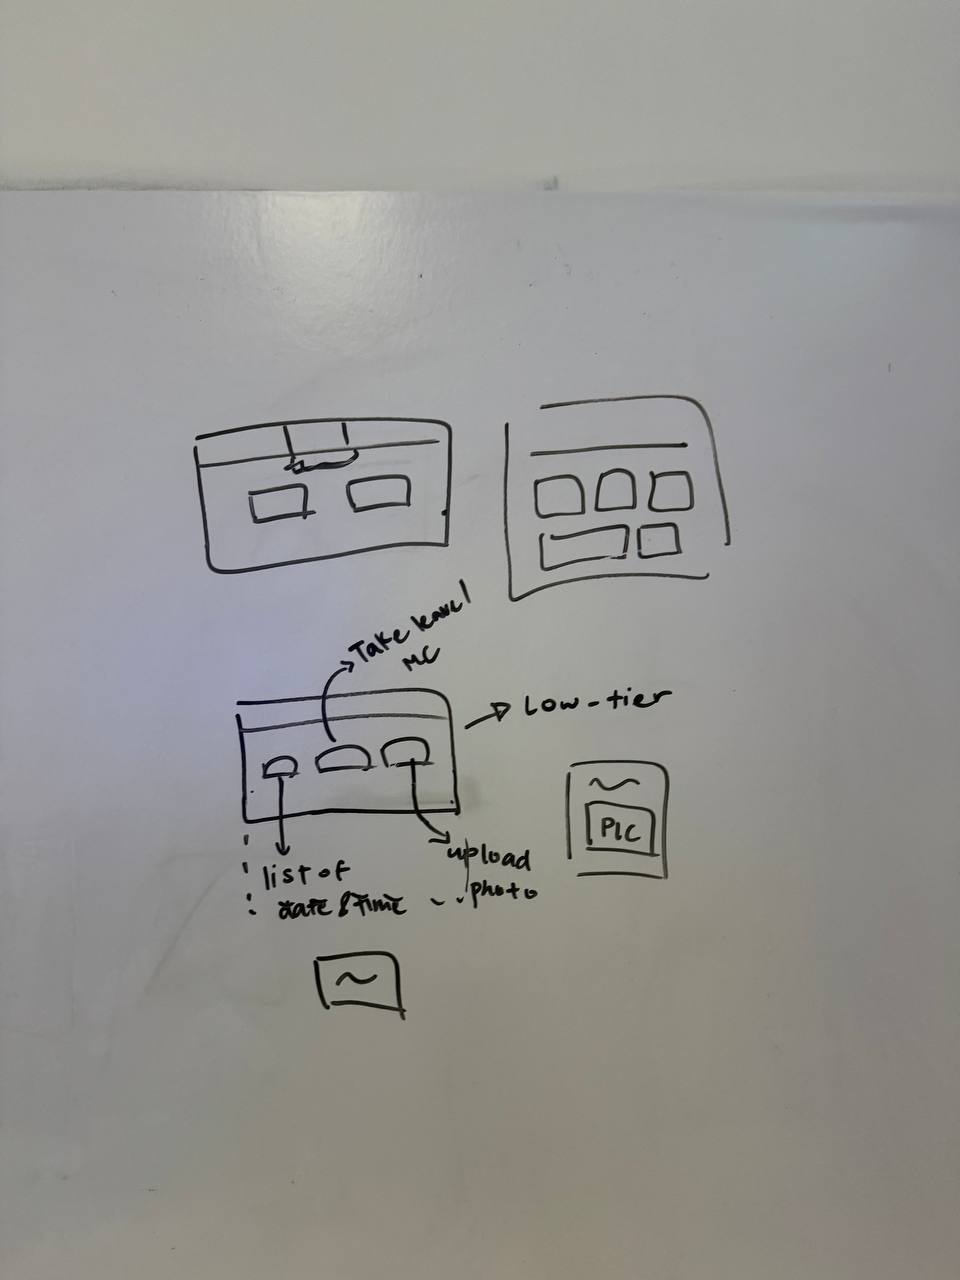 Take leave/
MC
Low-tier
PIC
list of
date & time
upload
photo